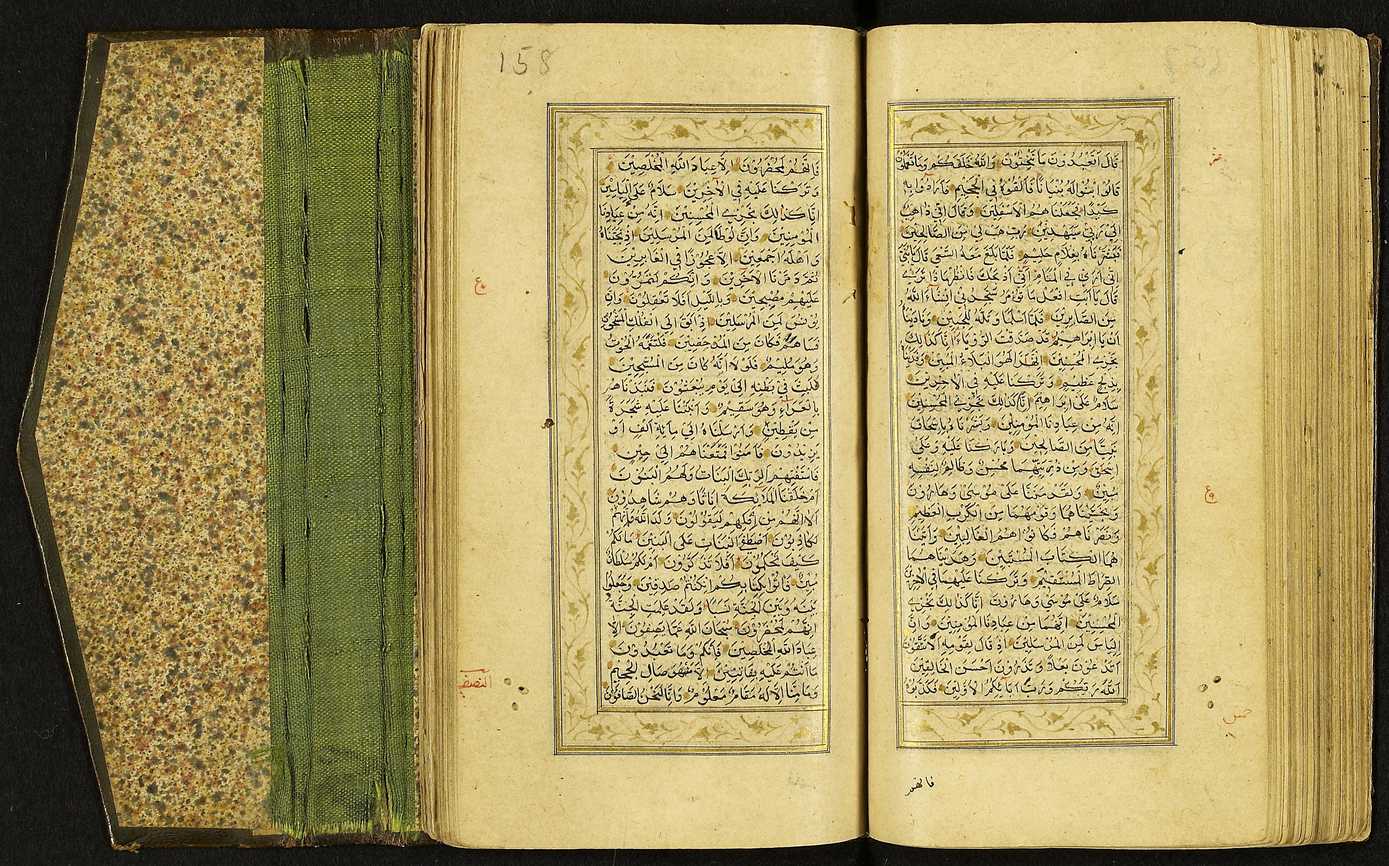 قَالَ اَتَعْبُدُونَ مَا تَنْحِتُونَ وَاللهُ خَلَقَكُمْ وَمَا تَعْمَلُونَ
قَالُوا ابْنُوا لَهُ بُنْيَانًا فَاَلْقُوهُ فِي الْجَحِيمِ فَاَرَادُوا بِهِ
كَيْدًا فَجَعَلْنَاهُمُ الْاَسْفَلِينَ وَقَالَ اِنِّي ذَاهِبٌ
اِلَى رَبِّي سَيَهْدِينِ رَبِّ هَبْ لِي مِنَ الصَّالِحِينَ
فَبَشَّرْنَاهُ بِغُلَامٍ حَلِيمٍ فَلَمَّا بَلَغَ مَعَهُ السَّعْيَ قَالَ يَا بُنَيَّ
اِنِّي اَرَى فِي الْمَنَامِ اَنِّي اَذْبَحُكَ فَانْظُرْ مَاذَا تَرَى
قَالَ يَا اَبَتِ افْعَلْ مَا تُؤْمَرُ سَتَجِدُنِي اِنْ شَاءَ اللهُ
مِنَ الصَّابِرِينَ فَلَمَّا اَسْلَمَا وَتَلَّهُ لِلْجَبِينِ وَنَادَيْنَاهُ
اَنْ يَا اِبْرَاهِيمُ قَدْ صَدَّقْتَ الرُّؤْيَا اِنَّا كَذَلِكَ
نَجْزِي الْمُحْسِنِينَ اِنَّ هَذَا لَهُوَ الْبَلَاءُ الْمُبِينُ وَفَدَيْنَاهُ
بِذِبْحٍ عَظِيمٍ وَتَرَكْنَا عَلَيْهِ فِي الْاَخِرِينَ
سَلَامٌ عَلَى اِبْرَاهِيمَ اِنَّا كَذَلِكَ نَجْزِي الْمُحْسِنِينَ
اِنَّهُ مِنْ عِبَادِنَا الْمُؤْمِنِينَ وَبَشَّرْنَاهُ بِاِسْحَاقَ
نَبِيًّا مِنَ الصَّالِحِينَ وَبَارَكْنَا عَلَيْهِ وَعَلَى
اِسْحَقَ وَمِنْ ذُرِّيَّتِهِمَا مُحْسِنٌ وَظَالِمٌ لِنَفْسِهِ
مُبِينٌ وَلَقَدْ مَنَنَّا عَلَى مُوسَى وَهَارُونَ
وَنَجَّيْنَاهُمَا وَقَوْمَهُمَا مِنَ الْكَرْبِ الْعَظِيمِ
وَنَصَرْنَاهُمْ فَكَانُوا هُمُ الْغَالِبِينَ وَآتَيْنَا
هُمَا الْكِتَابَ الْمُسْتَبِينَ وَهَدَيْنَاهُمَا
الصِّرَاطَ الْمُسْتَقِيمَ وَتَرَكْنَا عَلَيْهِمَا فِي الْاَخِرِينَ
سَلَامٌ عَلَى مُوسَى وَهَارُونَ اِنَّا كَذَلِكَ نَجْزِي
الْمُحْسِنِينَ اِنَّهُمَا مِنْ عِبَادِنَا الْمُؤْمِنِينَ وَاِنَّ
اِلْيَاسَ لَمِنَ الْمُرْسَلِينَ اِذْ قَالَ لِقَوْمِهِ اَلَا تَتَّقُونَ
اَتَدْعُونَ بَعْلًا وَتَذَرُونَ اَحْسَنَ الْخَالِقِينَ
اللهَ رَبَّكُمْ وَرَبَّ آبَائِكُمُ الْاَوَّلِينَ فَكَذَّبُوهُ
فانهم
ع
158
فَاِنَّهُمْ لَمُحْضَرُونَ اِلَّا عِبَادَ اللهِ الْمُخْلَصِينَ
وَتَرَكْنَا عَلَيْهِ فِي الْاَخِرِينَ سَلَامٌ عَلَى اِلْيَاسِينَ
اِنَّا كَذَلِكَ نَجْزِي الْمُحْسِنِينَ اِنَّهُ مِنْ عِبَادِنَا
الْمُؤْمِنِينَ وَاِنَّ لُوطًا لَمِنَ الْمُرْسَلِينَ اِذْ نَجَّيْنَاهُ
وَاَهْلَهُ اَجْمَعِينَ اِلَّا عَجُوزًا فِي الْغَابِرِينَ
ثُمَّ دَمَّرْنَا الْاَخَرِينَ وَاِنَّكُمْ لَتَمُرُّونَ
عَلَيْهِمْ مُصْبِحِينَ وَبِاللَّيْلِ اَفَلَا تَعْقِلُونَ وَاِنَّ
يُونُسَ لَمِنَ الْمُرْسَلِينَ اِذْ اَبَقَ اِلَى الْفُلْكِ الْمَشْحُونِ
فَسَاهَمَ فَكَانَ مِنَ الْمُدْحَضِينَ فَالْتَقَمَهُ الْحُوتُ
وَهُوَ مُلِيمٌ فَلَوْلَا اَنَّهُ كَانَ مِنَ الْمُسَبِّحِينَ
لَلَبِثَ فِي بَطْنِهِ اِلَى يَوْمِ يُبْعَثُونَ فَنَبَذْنَاهُ
بِالْعَرَاءِ وَهُوَ سَقِيمٌ وَاَنْبَتْنَا عَلَيْهِ شَجَرَةً
مِنْ يَقْطِينٍ وَاَرْسَلْنَاهُ اِلَى مِائَةِ اَلْفٍ اَوْ
يَزِيدُونَ فَآمَنُوا فَمَتَّعْنَاهُمْ اِلَى حِينٍ
فَاسْتَفْتِهِمْ اَلِرَبِّكَ الْبَنَاتُ وَلَهُمُ الْبَنُونَ
اَمْ خَلَقْنَا الْمَلَائِكَةَ اِنَاثًا وَهُمْ شَاهِدُونَ
اَلَا اِنَّهُمْ مِنْ اِفْكِهِمْ لَيَقُولُونَ وَلَدَ اللهُ وَاِنَّهُمْ
لَكَاذِبُونَ اَصْطَفَى الْبَنَاتِ عَلَى الْبَنِينَ مَا لَكُمْ
كَيْفَ تَحْكُمُونَ اَفَلَا تَذَكَّرُونَ اَمْ لَكُمْ سُلْطَانٌ
مُبِينٌ فَاْتُوا بِكِتَابِكُمْ اِنْ كُنْتُمْ صَادِقِينَ وَجَعَلُوا
بَيْنَهُ وَبَيْنَ الْجِنَّةِ نَسَبًا وَلَقَدْ عَلِمَتِ الْجِنَّةُ
اِنَّهُمْ لَمُحْضَرُونَ سُبْحَانَ اللهِ عَمَّا يَصِفُونَ اِلَّا
عِبَادَ اللهِ الْمُخْلَصِينَ فَاِنَّكُمْ وَمَا تَعْبُدُونَ
مَا اَنْتُمْ عَلَيْهِ بِفَاتِنِينَ اِلَّا مَنْ هُوَ صَالِ الْجَحِيمِ
وَمَا مِنَّا اِلَّا لَهُ مَقَامٌ مَعْلُومٌ وَاِنَّا لَنَحْنُ الصَّافُّونَ
ع
النصف